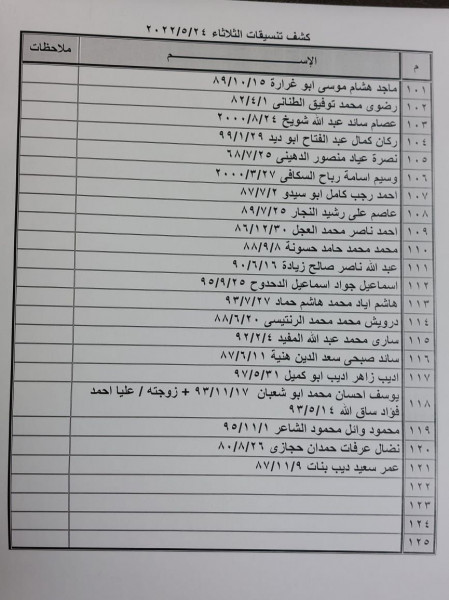 كشف تنسيقات الثلاثاء ٢٠٢٢/٥/٢٤
م الإســـم ملاحظات
١٠١ ماجد هشام موسى ابو غرارة ٨٩/١٠/١٥
١٠٢ رضوى محمد توفيق الطنانى ٨٢/٤/١
١٠٣ عصام سائد عبد الله شويخ ٢٠٠٠/٨/٢٤
١٠٤ ركان كمال عبد الفتاح ابو ديد ٩٩/١/٢٩
١٠٥ نصرة عياد منصور الدهينى ٦٨/٧/٢٥
١٠٦ وسيم اسامة رباح السكافى ٢٠٠٠/٣/٢٧
١٠٧ احمد رجب كامل ابو سيدو ٨٧/٧/٢
١٠٨ عاصم على رشيد النجار ٨٩/٧/٢٥
١٠٩ احمد ناصر محمد العجل ٨٦/١٢/٣٠
١١٠ محمد محمد حامد حسونة ٨٨/٩/٨
١١١ عبد الله ناصر صالح زيادة ٩٠/٦/١٦
١١٢ اسماعيل جواد اسماعيل الدحدوح ٩٥/٩/٢٥
١١٣ هاشم اياد محمد هاشم حماد ٩٣/٧/٢٧
١١٤ درويش محمد محمد الرنتيسى ٨٨/٦/٢٠
١١٥ سارى محمد عبد الله المفيد ٩٢/٢/٤
١١٦ سائد صبحى سعد الدين هنية ٨٧/٦/١١
١١٧ اديب زاهر اديب ابو كميل ٩٧/٥/٣١
١١٨ يوسف احسان محمد ابو شعبان ٩٣/١١/١٧ + زوجته / عليا احمد
فؤاد ساق الله ٩٣/٥/١٤
١١٩ محمود وائل محمود الشاعر ٩٥/١١/١
١٢٠ نضال عرفات حمدان حجازى ٨٠/٨/٢٦
١٢١ عمر سعيد ديب بنات ٨٧/١١/٩
١٢٢
١٢٣
١٢٤
١٢٥